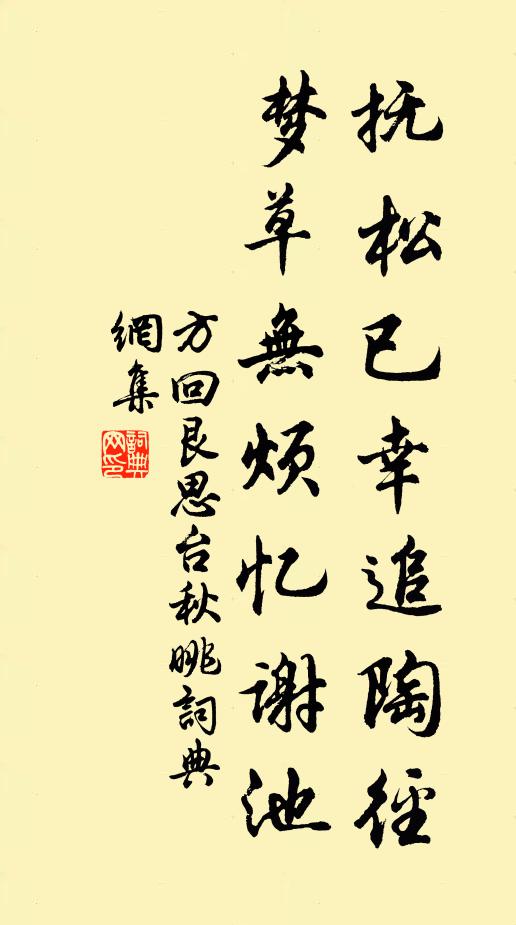 抚松已幸追陶径
梦草無烦忆谢池
方回艮思台秋眺詞典
網集
詞典
网印